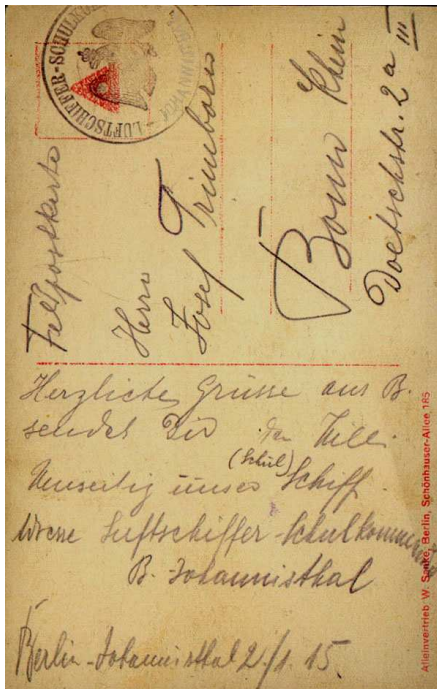 LUFTSCHIFFER-SCHULKO
JOHANNISTHAL
Feldpostkarte
Herrn
Josef Trimborn
Bonn Rhein
Doetschstr. 2a III
Herzliche Grüsse aus B.
sendet Dir der Willi.
Umseitig unser (Schul) Schiff.
Adresse Luftschiffer Schulkommando
B. Johannisthal
Berlin-Johannisthal 21/1. 15.
Alleinvertrieb W. Sanke, Berlin, Schönhauser-Allee 185